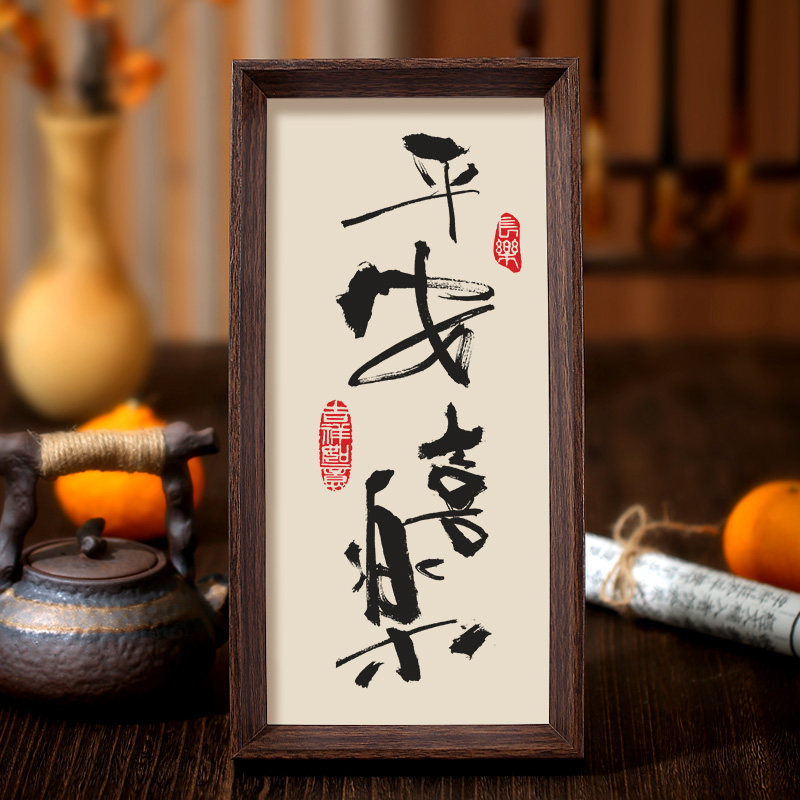 平安喜樂
長樂
吉祥如意